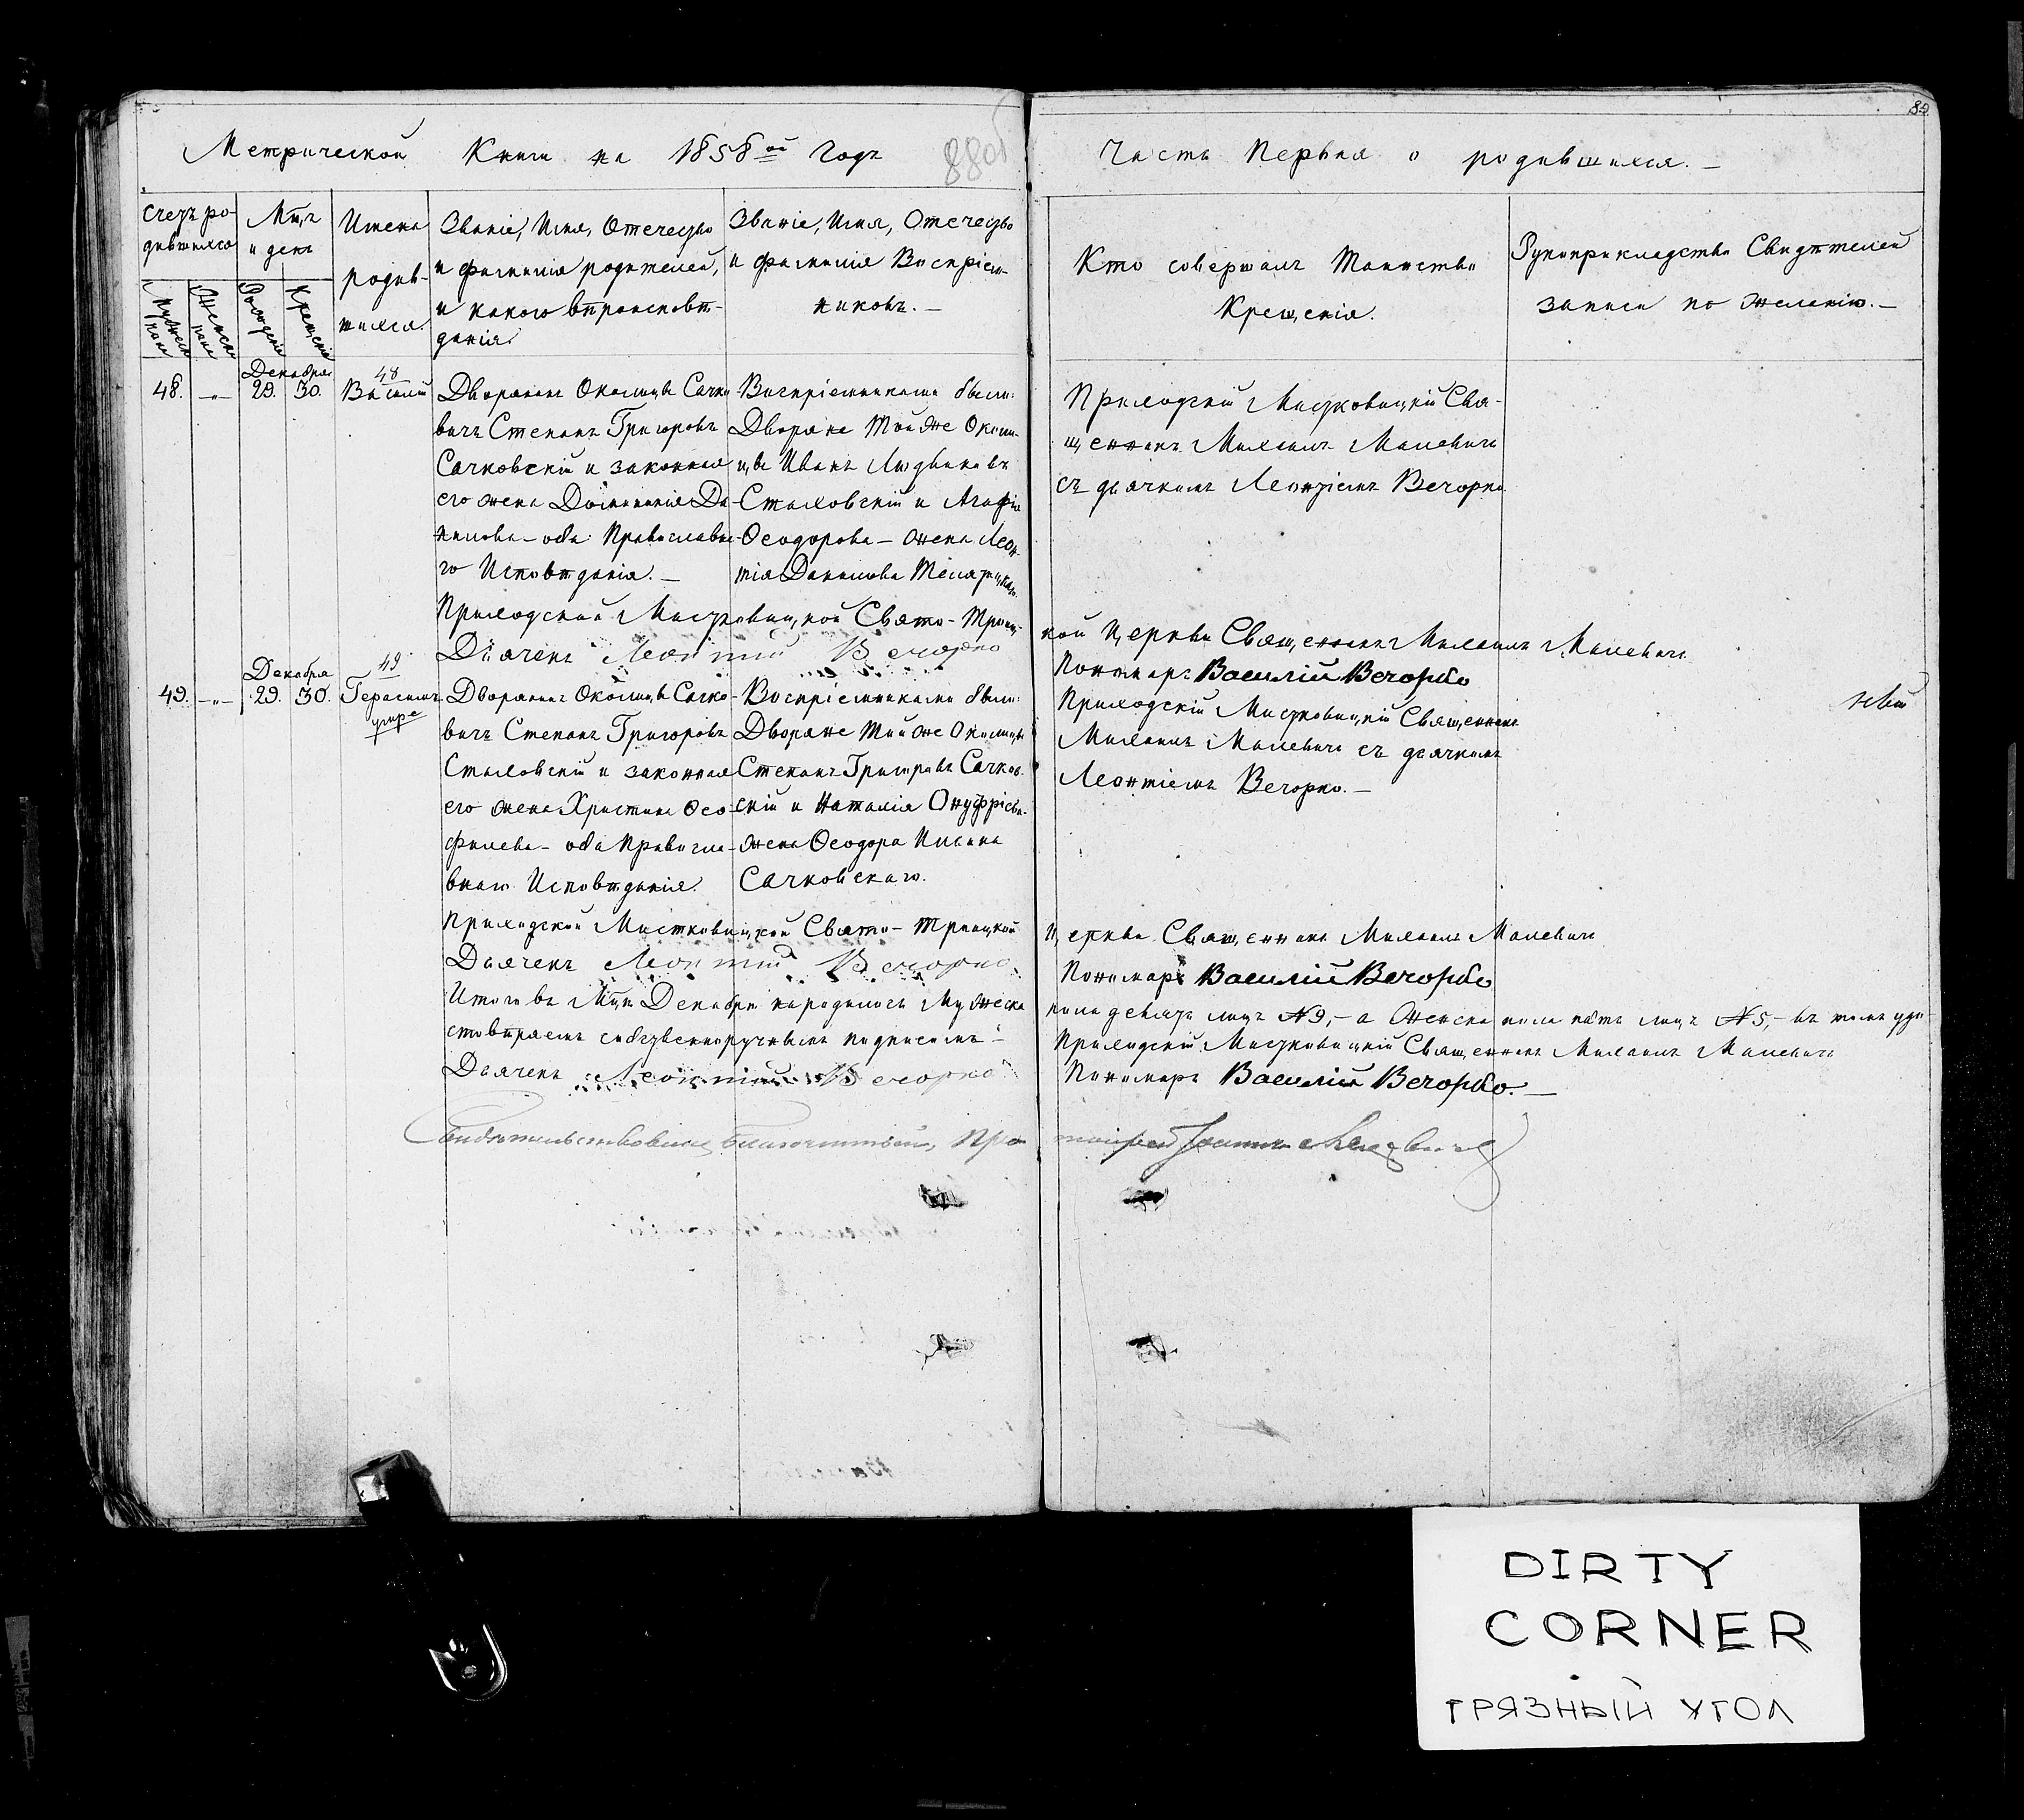 Метрической Книги на 1858ой Годъ 88об
Часть Первая о родившихся. –
89
Счетъ ро-
дившихся
Мужеска
пола
Женска
пола
Мцъ
и день
Рожденiе
Крещенiе
Имена
родив-
шихся.
Званiе, Имя, Отечество
и фамилiя родителей,
и какого вѣроисповѣ-
данiя.
Званiе, Имя, Отечество
и фамилiя Воспрiем-
никовъ. –
Кто совершалъ Таинство
Крещенiя.
Рукоприкладство Свидѣтелей
записи по желанiю. –
Декабря
48. –"– 29. 30.
48
Василiй
Дворянинъ Околицы Сачко
вичъ Степанъ Григоровъ
Сачковскiй и законная
его жена Доминикiя Да
нилова – оба Православна
го Исповѣданiя. –
Воспрiемниками были:
Дворяне Той же Околи-
цы Иванъ Людвиковъ
Стаховскiй и Агафiя
Ѳеодорова – жена Леон-
тiя Данилова
Приходскiй Мистковицкiй Свя-
щенникъ Михаилъ Малевичъ
съ дьячкомъ Леонтiемъ Вечорко
Приходской Мистковицкой Свято-Троиц-
кой Церкви Священникъ Михаилъ Малевичъ
Дьячекъ Леонтiй Вечорко
Пономарь Василiй Вечорко
Декабря
49. –"– 29. 30.
49
Герасимъ
умре
Дворянинъ Околицы Сачко-
вичъ Степанъ Григоровъ
Стаховскiй и законная
его жена Христина Ѳео-
филева – оба Правосла-
внаго Исповѣданiя.
Воспрiемниками были:
Дворяне Той же Околицы
Степанъ Григоровъ Сачков-
скiй и Наталiя Онуфрiева-
жена Ѳеодора
Сачковскаго.
Приходскiй Мистковицкiй Священникъ
Михаилъ Малевичъ съ дьячкомъ
Леонтiемъ Вечорко. –
Приходской Мистковицкой Свято-Троицкой
Церкви Священникъ Михаилъ Малевичъ
Дьячекъ Леонтiй Вечорко
Пономарь Василiй Вечорко
Итого въ Мцѣ Декабрѣ народилось Мужеска
пола девять лицъ №9,– а Женска пола пять лицъ №5,– въ томъ удо-
стовѣряемъ собственноручнымъ подписомъ –
Приходскiй Мистковицкiй Священникъ Михаилъ Малевичъ
Дьячекъ Леонтiй Вечорко
Пономарь Василiй Вечорко. –
Свидѣтельствовалъ Благочинный, Про
тоiерей Iоаннъ
DIRTY
CORNER
ГРЯЗНЫЙ УГОЛ